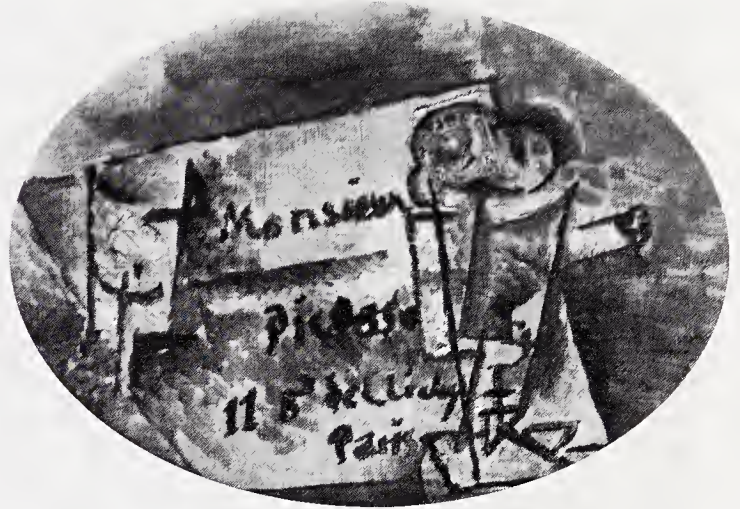 Monsieur
picasso
11 Bd de Clichy
Paris